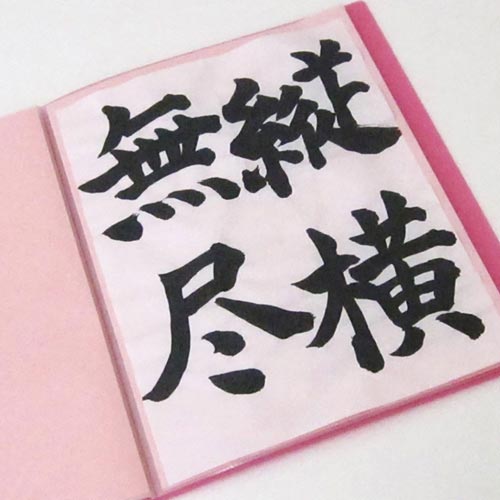 縦横
無尽